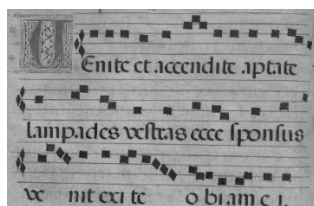 VEnite et accendite aptate
lampades vestras ecce sponsus
ve nit exi te o bi am c i.